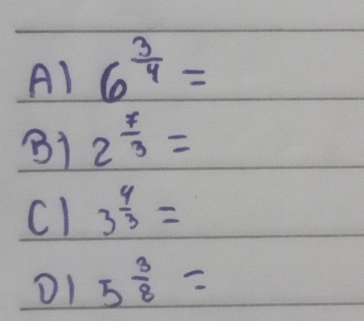 A) 6^(3/4) =
B) 2^(7/3) =
C) 3^(4/3) =
D) 5^(3/8) =